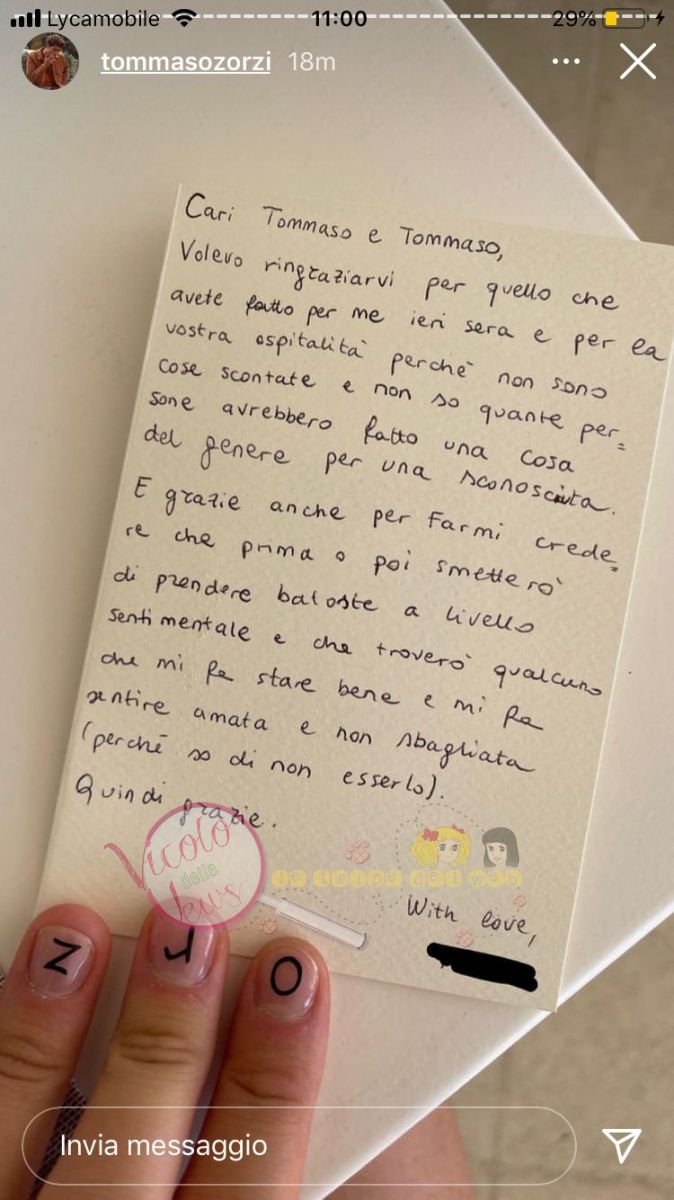 Lycamobile 11:00 29%
tommasozorzi 18m
Cari Tommaso e Tommaso,
Volevo ringraziarvi per quello che
avete fatto per me ieri sera e per la
vostra ospitalità perché non sono
cose scontate e non so quante per=
sone avrebbero fatto una cosa
del genere per una sconosciuta.
E grazie anche per farmi crede=
re che prima o poi smetterò
di prendere batoste a livello
sentimentale e che troverò qualcuno
che mi fa stare bene e mi fa
sentire amata e non sbagliata
(perché so di non esserlo).
Quindi grazie.
Vicolo
delle
News
le talpe del web
With love,
Z
R
O
Invia messaggio